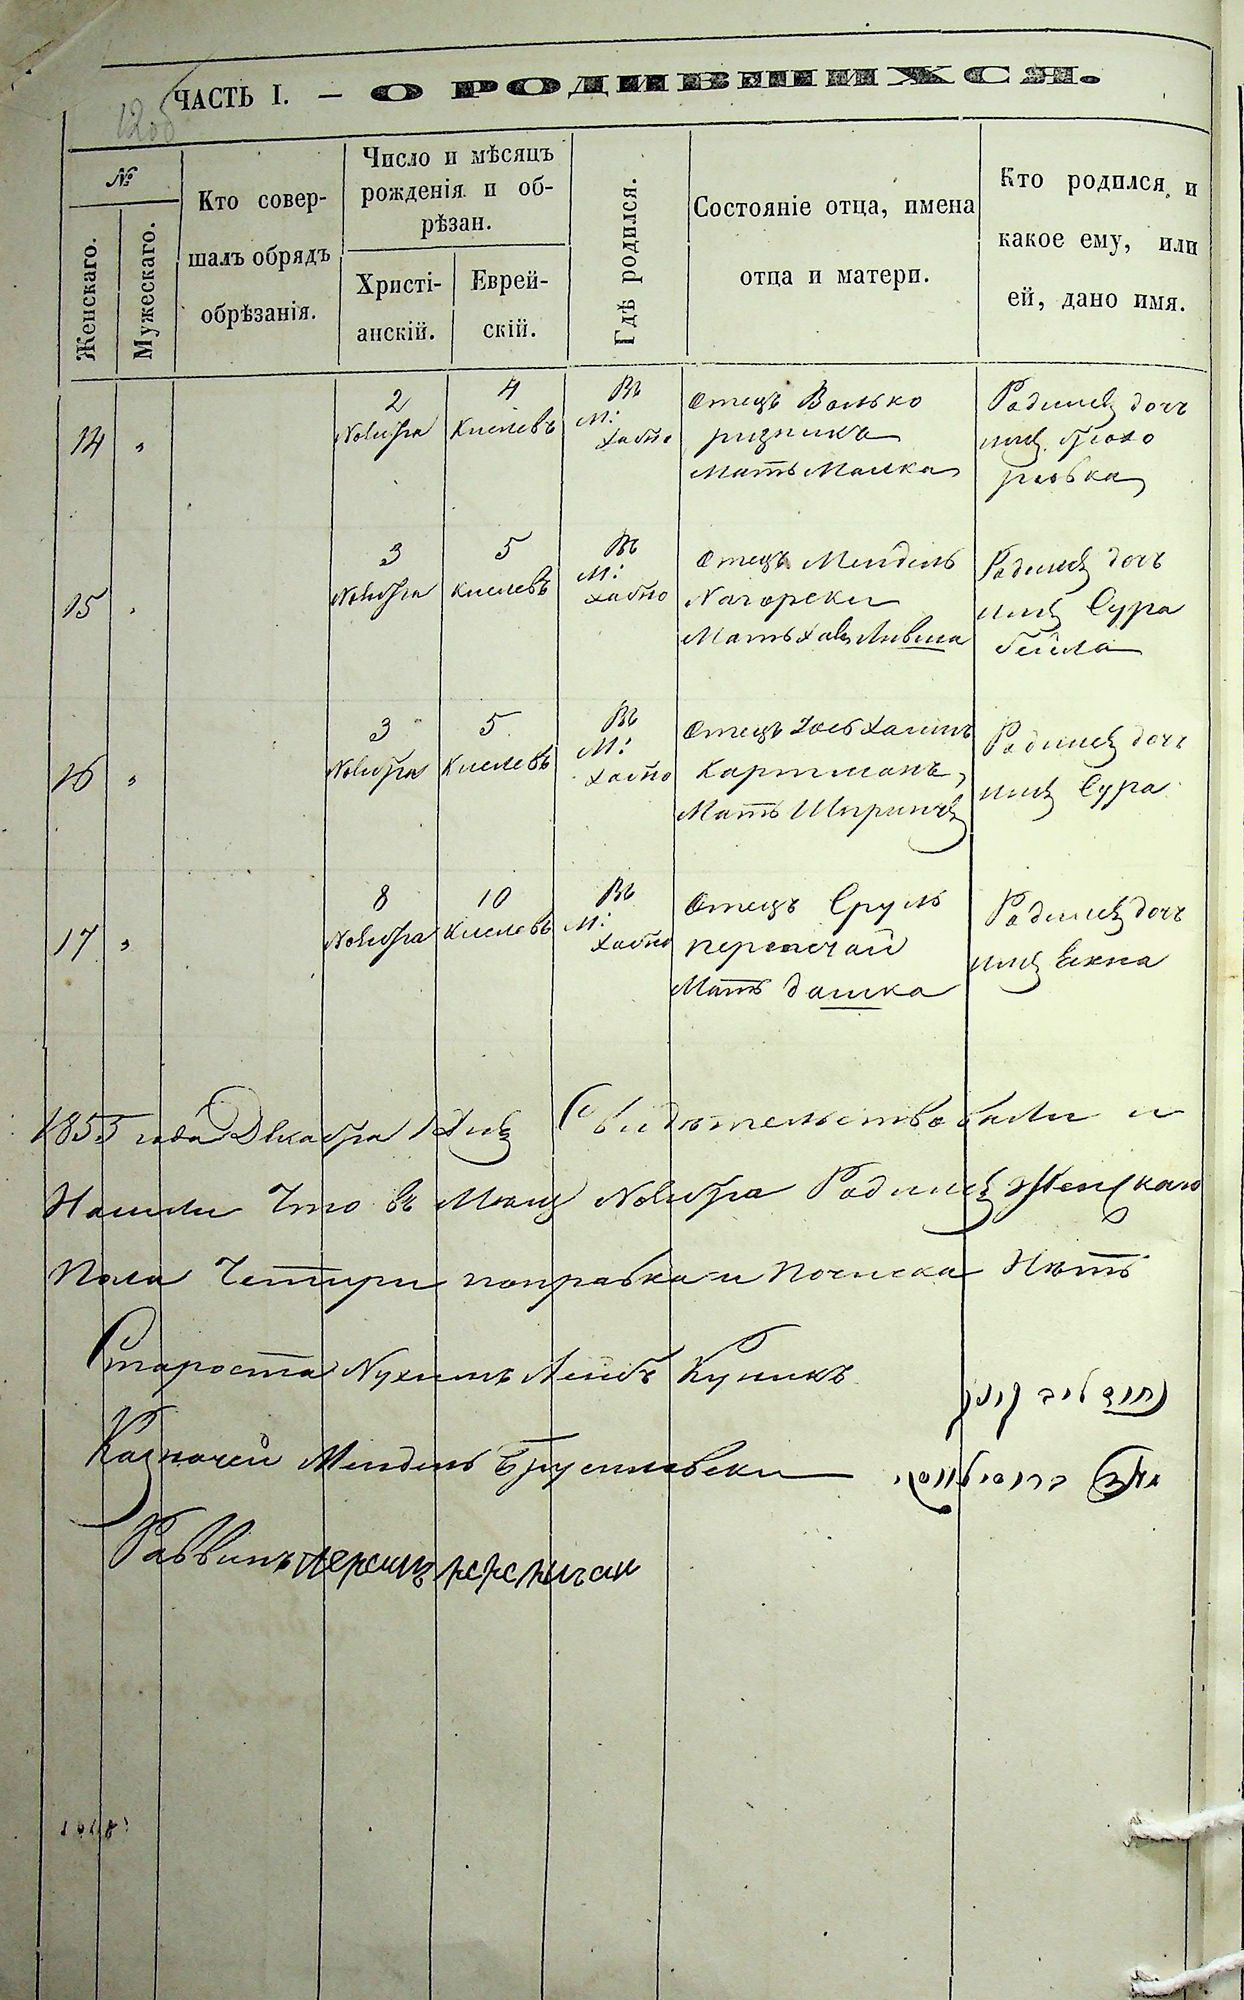 12об
ЧАСТЬ I. — О РОДИВШИХСЯ.
№
Женскаго.
Мужескаго.
Кто совер-
шалъ обрядъ
обрѣзанія.
Число и мѣсяцъ
рожденія и об-
рѣзан.
Христі-
анскій.
Еврей-
скій.
Гдѣ родился.
Состояніе отца, имена
отца и матери.
Кто родился и
какое ему, или
ей, дано имя.
14 "
2
Ноября
4
Кислевъ
Въ
М:
Хабно
Отецъ Волько
ризникъ
Мать Малка
Родилась дочь
имя
ривка
15 "
3
Ноября
5
Кислевъ
Въ
М:
Хабно
Отецъ Мендиль
Нагорски
Мать Хая
Родилась дочь
имя Сура
бейла
16 "
3
Ноября
5
Кислевъ
Въ
М:
Хабно
Отецъ Хаимъ
Картманъ
Мать Шпринца
Родилась дочь
имя Сура
17 "
8
Ноября
10
Кислевъ
Въ
М:
Хабно
Отецъ Сруль
перепечай
Мать дашка
Родилась дочь
имя
1855 года Декабря 1 дня Свидѣтельствовали и
Нашли Что въ Ноября Женскаго
Пола Четири поправка и Почиска Нѣтъ
Староста Нухимъ Лейбъ Куникъ
Казначей Мендель Брусиловски
Раввинъ